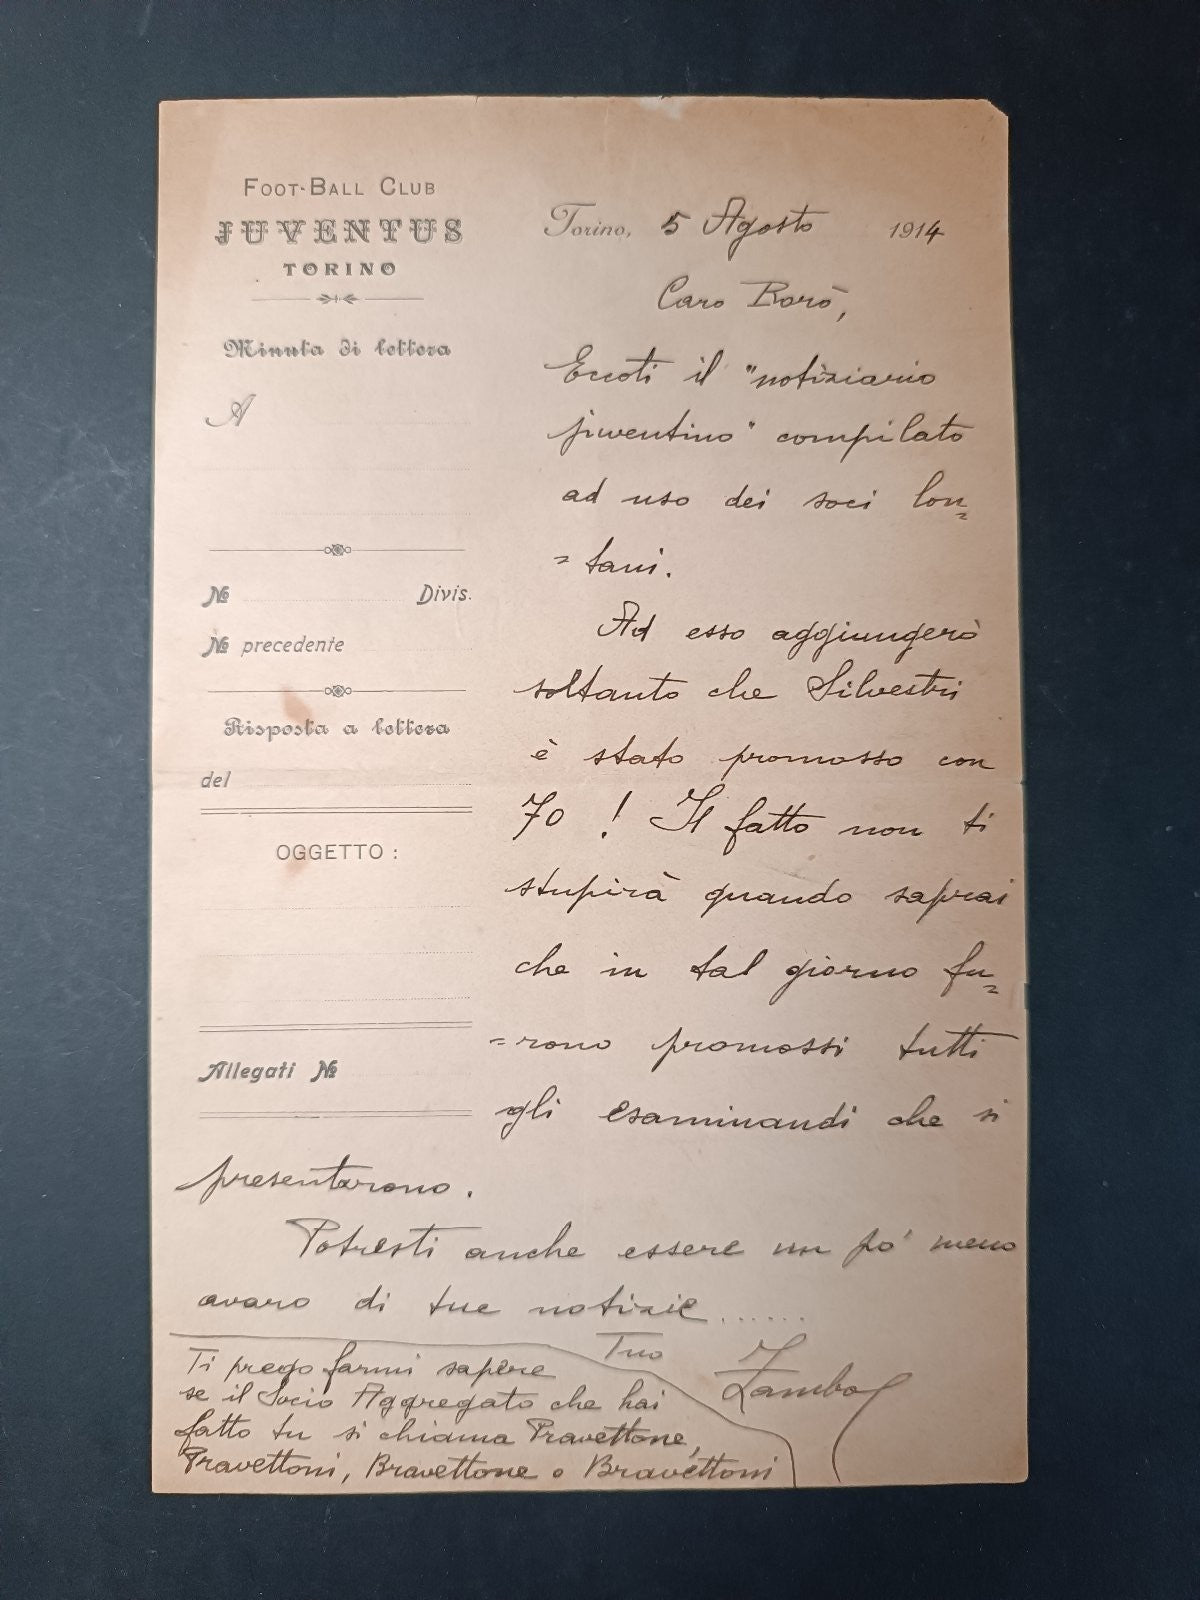 FOOT-BALL CLUB
JUVENTUS
TORINO
Minuta di lettera
A
№ Divis.
№ precedente
Risposta a lettera
del
OGGETTO :
Allegati №
Torino, 5 Agosto 1914
Caro Borò,
Eccoti il "notiziario
juventino" compilato
ad uso dei soci lon=
=tani.
Ad esso aggiungerò
soltanto che Silvestri
è stato promosso con
70 ! Il fatto non ti
stupirà quando saprai
che in tal giorno fu=
=rono promossi tutti
gli esaminandi che si
presentarono.
Potresti anche essere un po' meno
avaro di tue notizie......
Tuo
Zambo
Ti prego farmi sapere
se il Socio Aggregato che hai
fatto tu si chiama Pravettone,
Pravettoni, Bravettone o Bravettoni